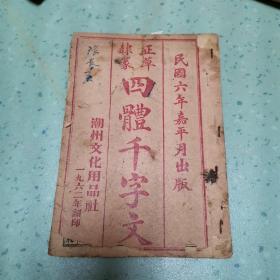 民國六年嘉平月出版
正草
隸篆
四體千字文
潮州文化用品社
一九六二年翻印